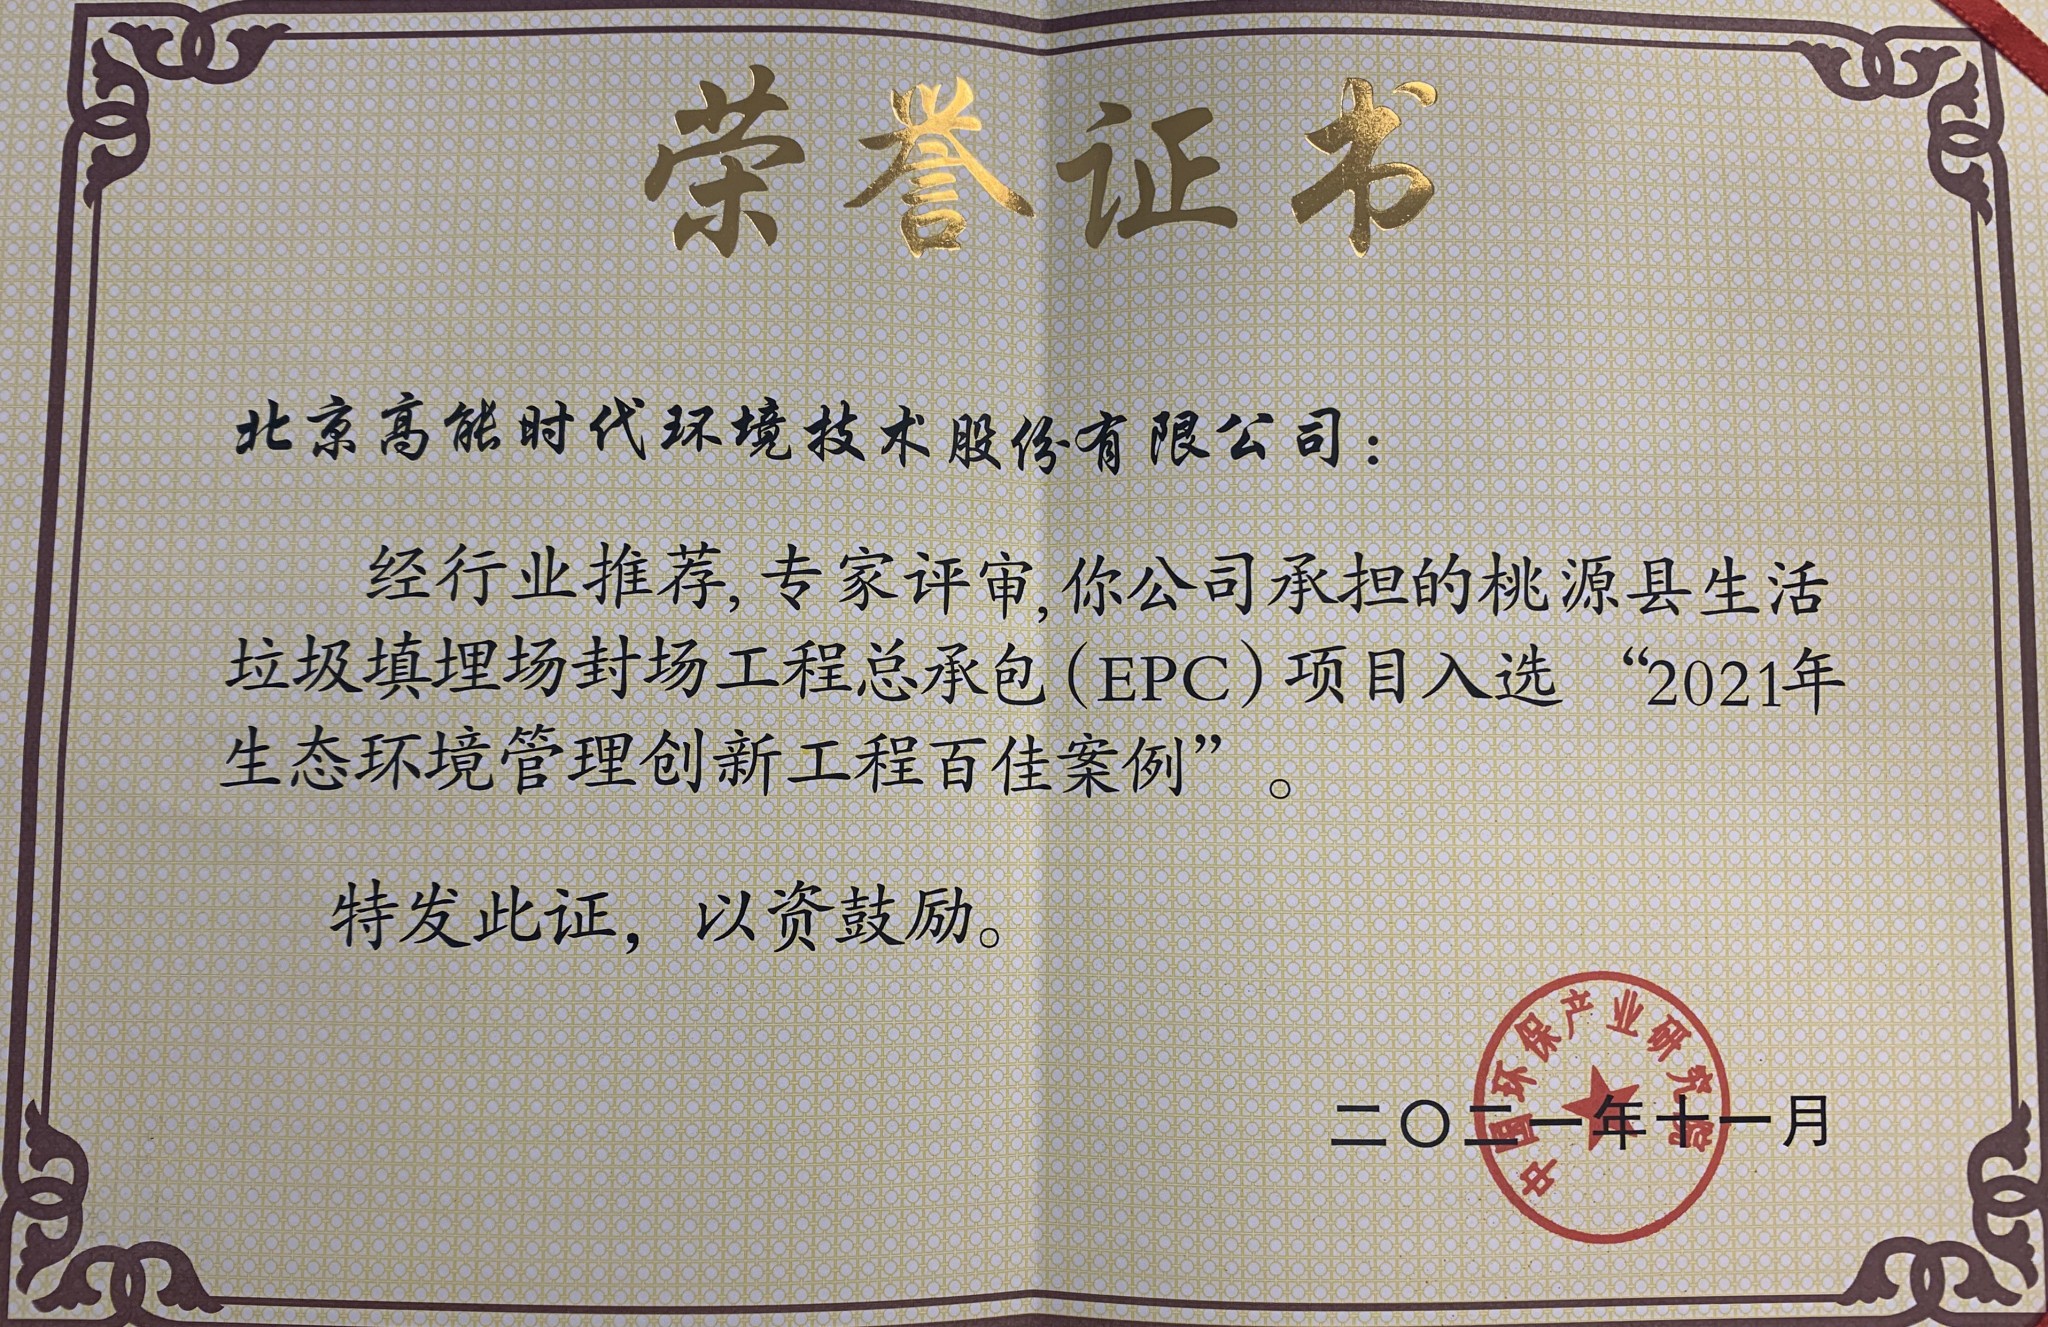 荣誉证书
北京高能时代环境技术股份有限公司：
经行业推荐,专家评审,你公司承担的桃源县生活
垃圾填埋场封场工程总承包(EPC)项目入选 “2021年
生态环境管理创新工程百佳案例” 。
特发此证，以资鼓励。
中国环保产业研究院
二〇二一年十一月